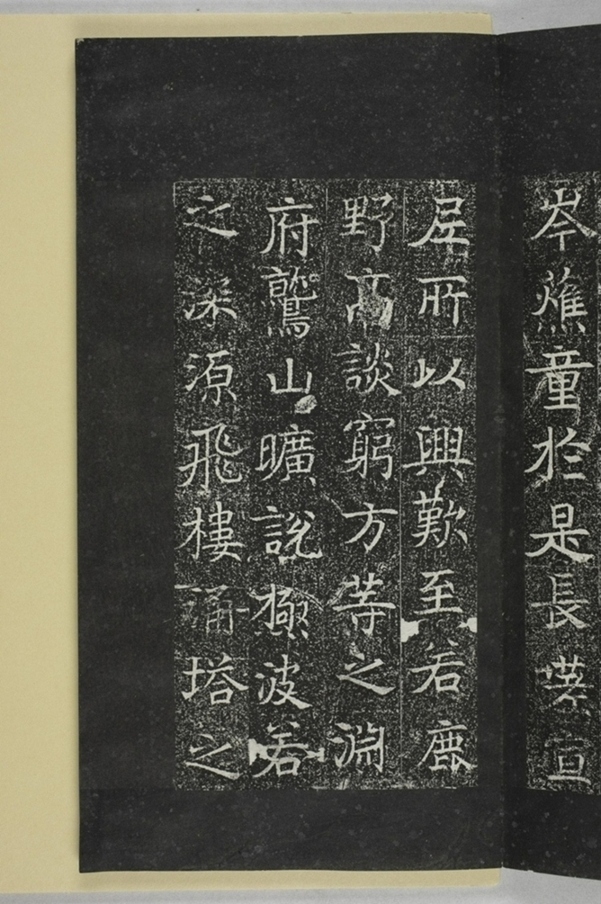 岑童於是長宣
尼所以興歎至若鹿
野高談窮方等之淵
府鷲山曠說極波若
之深源飛樓涌塔之